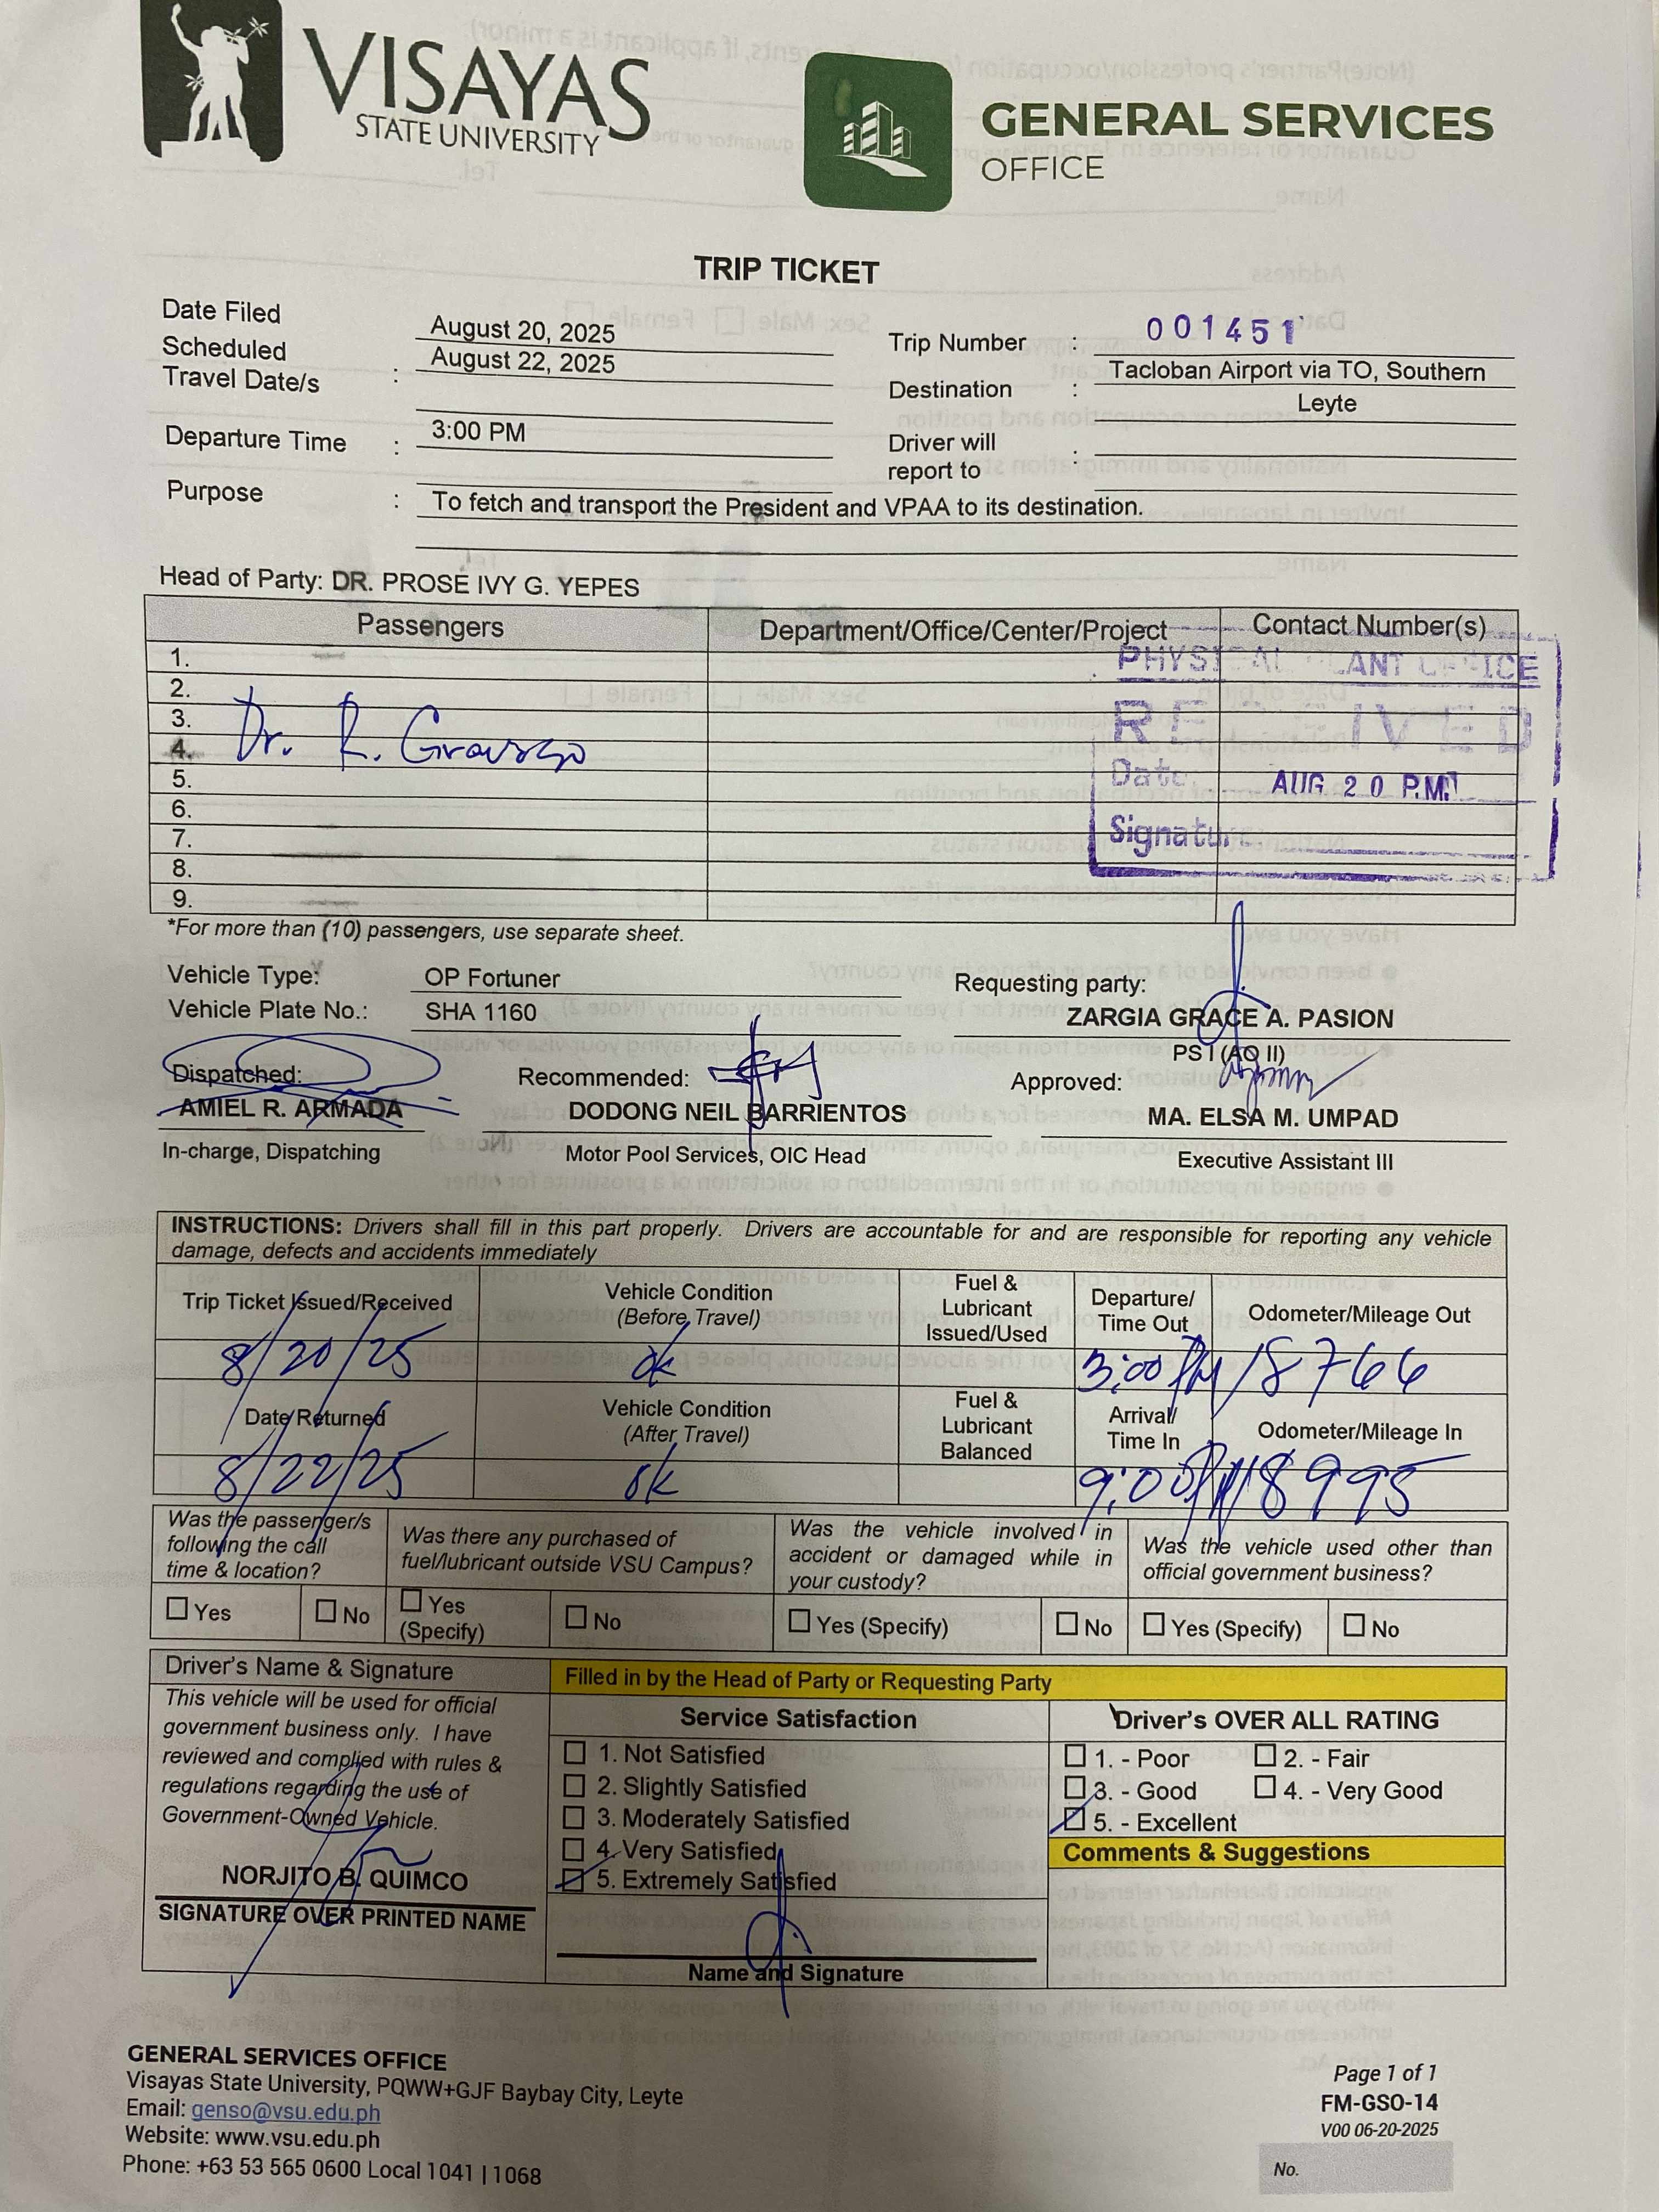 VISAYAS
STATE UNIVERSITY
GENERAL SERVICES
OFFICE
TRIP TICKET
Date Filed August 20, 2025
Scheduled Travel Date/s : August 22, 2025
Departure Time : 3:00 PM
Trip Number : 001451
Destination : Tacloban Airport via TO, Southern
Leyte
Driver will report to :
Purpose : To fetch and transport the President and VPAA to its destination.
Head of Party: DR. PROSE IVY G. YEPES
Passengers Department/Office/Center/Project Contact Number(s)
1.
2.
3.
4.
Dr. R.
5.
6.
7.
8.
9.
PHYSICAL PLANT OFFICE
RECEIVED
Date AUG 20 P.M.
Signature
*For more than (10) passengers, use separate sheet.
Vehicle Type: OP Fortuner
Vehicle Plate No.: SHA 1160
Requesting party:
ZARGIA GRACE A. PASION
PS I (AO II)
Dispatched:
AMIEL R. ARMADA
In-charge, Dispatching
Recommended:
DODONG NEIL BARRIENTOS
Motor Pool Services, OIC Head
Approved:
MA. ELSA M. UMPAD
Executive Assistant III
INSTRUCTIONS: Drivers shall fill in this part properly. Drivers are accountable for and are responsible for reporting any vehicle
damage, defects and accidents immediately
Trip Ticket Issued/Received
8/20/25
Vehicle Condition
(Before Travel)
ok
Fuel &
Lubricant
Issued/Used
Departure/
Time Out
3:00 PM
Odometer/Mileage Out
18766
Date Returned
8/22/25
Vehicle Condition
(After Travel)
ok
Fuel &
Lubricant
Balanced
Arrival/
Time In
9:00 PM
Odometer/Mileage In
18995
Was the passenger/s
following the call
time & location?
Yes No
Was there any purchased of
fuel/lubricant outside VSU Campus?
Yes
(Specify)
No
Was the vehicle involved in
accident or damaged while in
your custody?
Yes (Specify) No
Was the vehicle used other than
official government business?
Yes (Specify) No
Driver's Name & Signature
This vehicle will be used for official
government business only. I have
reviewed and complied with rules &
regulations regarding the use of
Government-Owned Vehicle.
NORJITO B. QUIMCO
SIGNATURE OVER PRINTED NAME
Filled in by the Head of Party or Requesting Party
Service Satisfaction
1. Not Satisfied
2. Slightly Satisfied
3. Moderately Satisfied
4. Very Satisfied
5. Extremely Satisfied
Name and Signature
Driver's OVER ALL RATING
1. - Poor 2. - Fair
3. - Good 4. - Very Good
5. - Excellent
Comments & Suggestions
GENERAL SERVICES OFFICE
Visayas State University, PQWW+GJF Baybay City, Leyte
Email: genso@vsu.edu.ph
Website: www.vsu.edu.ph
Phone: +63 53 565 0600 Local 1041 | 1068
Page 1 of 1
FM-GSO-14
V00 06-20-2025
No.